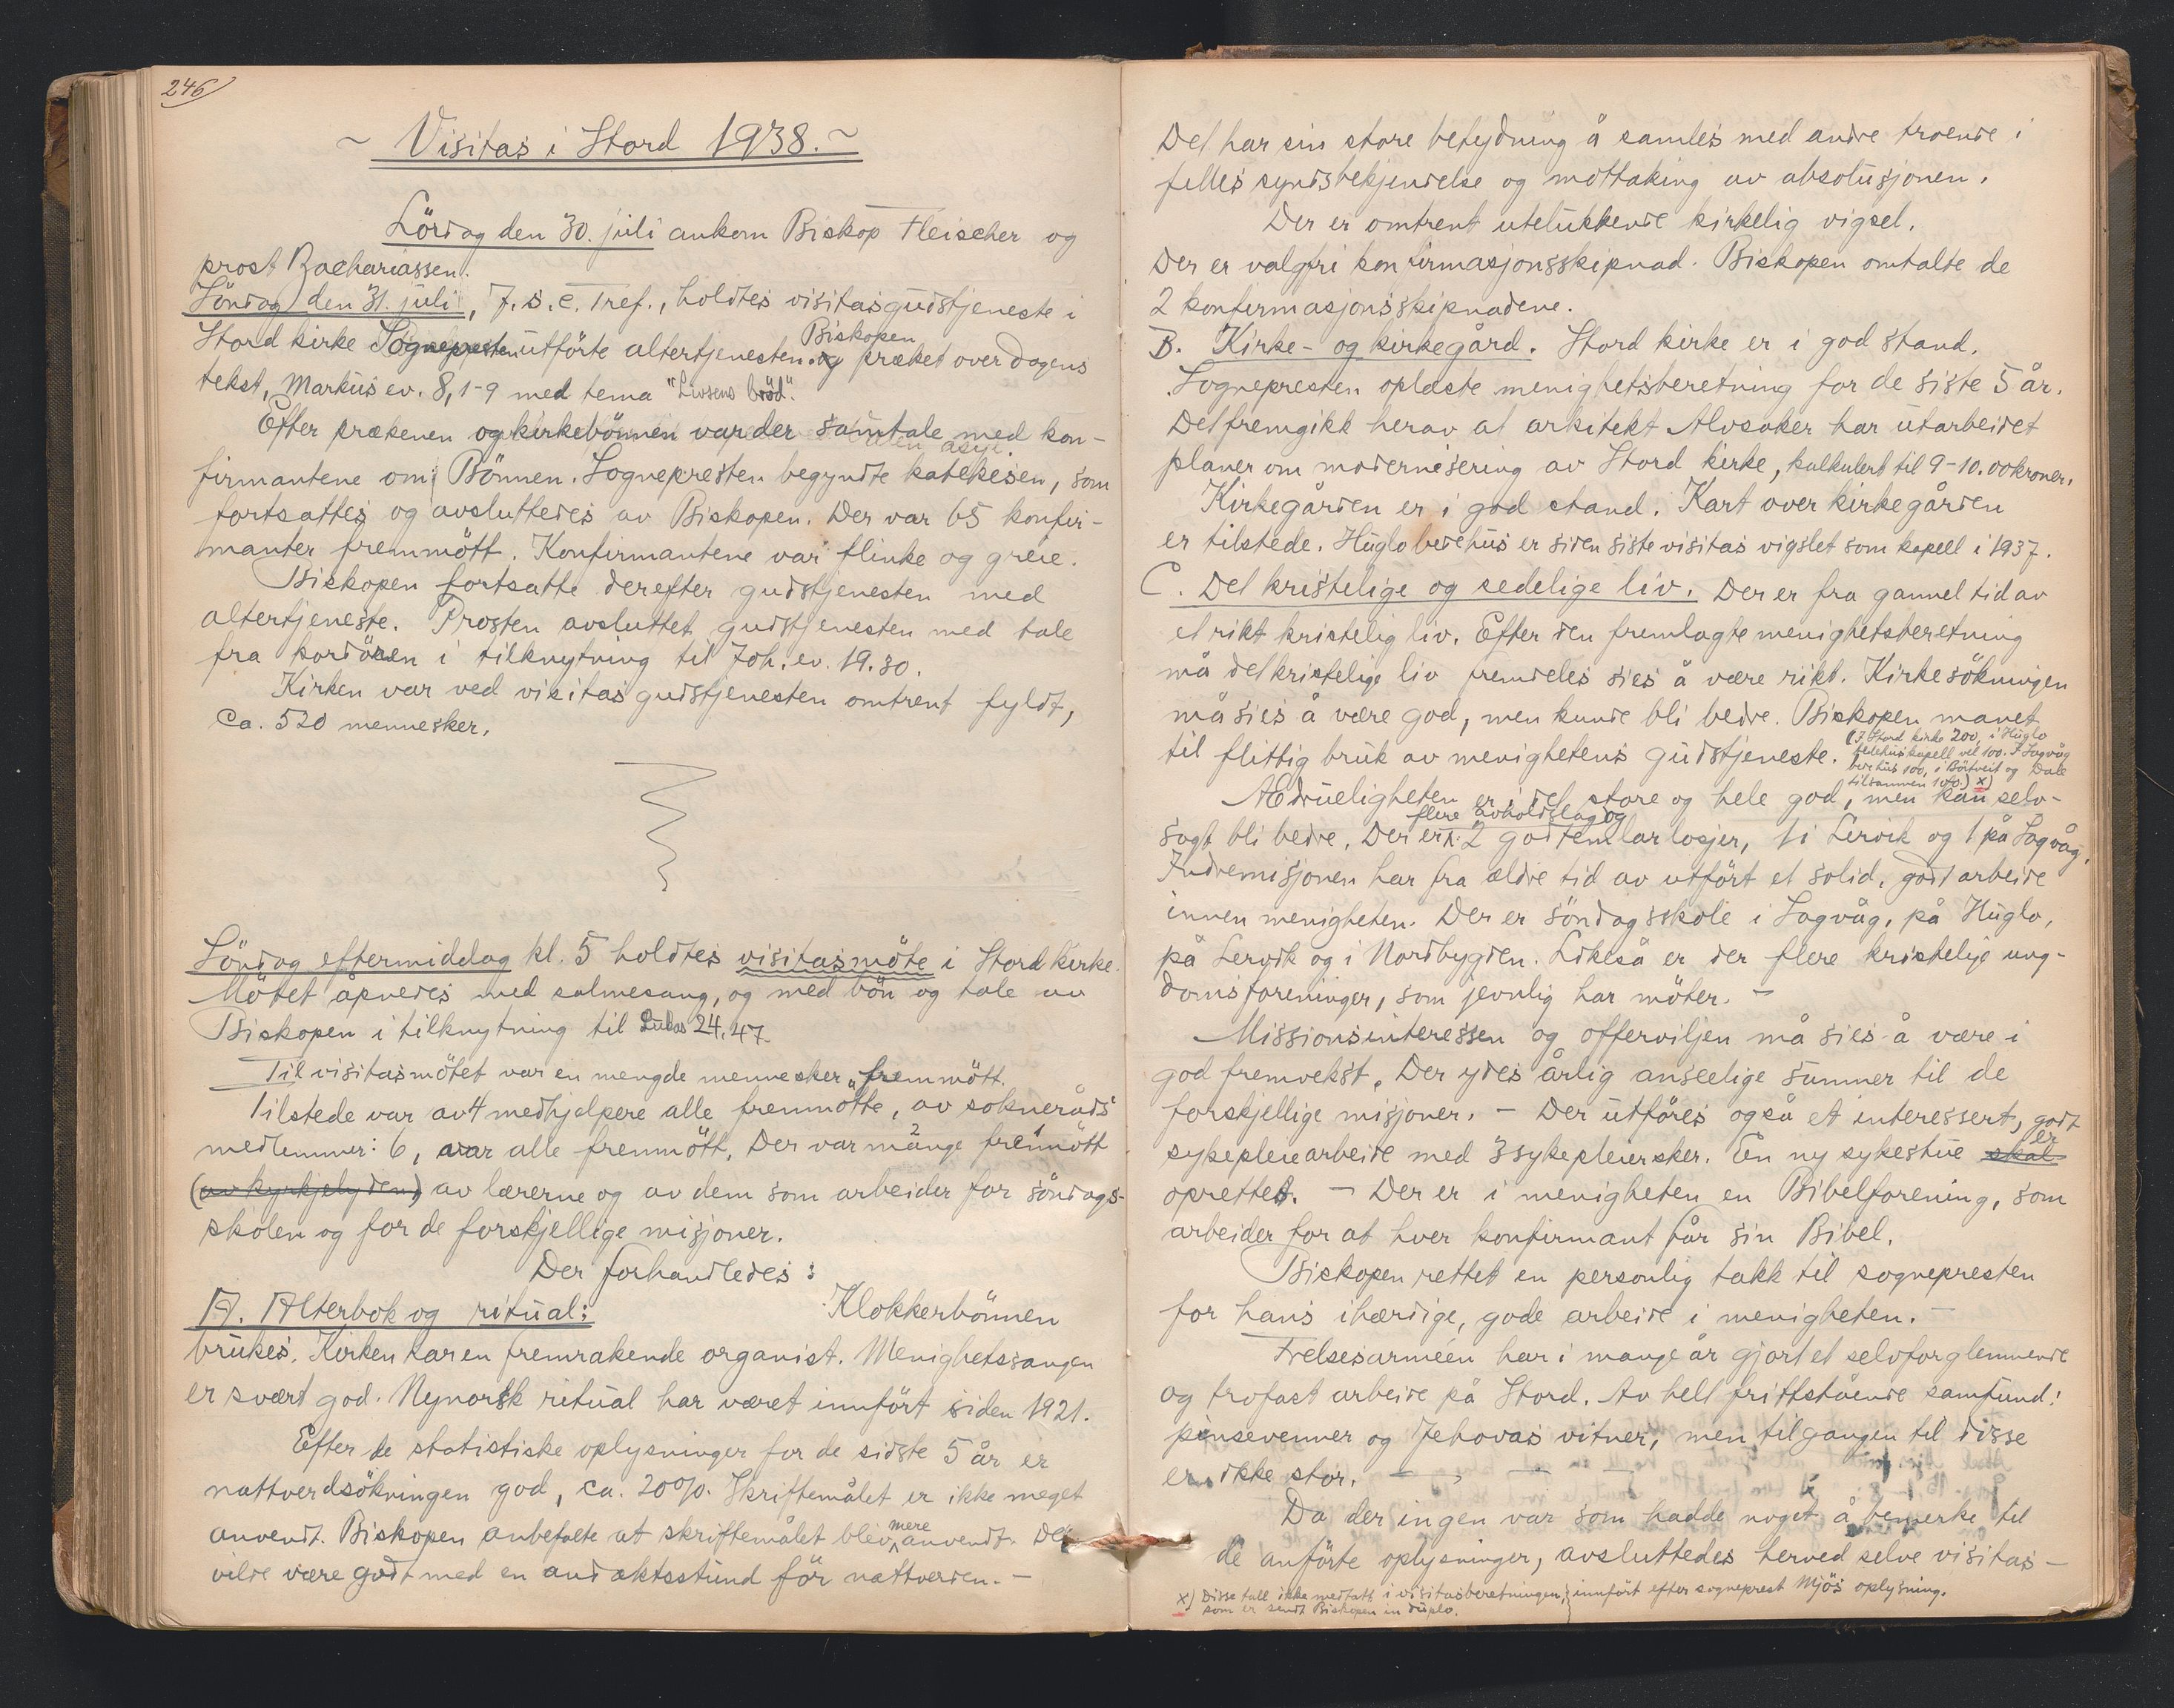 246
~ Visitas i Stord 1938. ~
Lördag den 30. juli ankom Biskop Fleischer og
prost Zachariassen.
Söndag den 31. juli, 7. s. e. Tref., holdtes visitasgudstjeneste i
Stord kirke Sognepresten utförte altertjenesten. og Biskopen præket over dagens
tekst, Markus ev. 8, 1-9 med tema "Livsens bröd".
Efter prækenen og kirkebönnen var der samtale med kon-
firmantene om: Bönnen. Sognepresten begyndte katekesen, som
fortsattes og avsluttedes av Biskopen. Der var 65 konfir-
manter fremmött. Konfirmantene var flinke og greie.
Biskopen fortsatte derefter gudstjenesten med
altertjeneste. Prosten avsluttet gudstjenesten med tale
fra kordören i tilknytning til Joh. ev. 19.30.
Kirken var ved visitasgudstjenesten omtrent fyldt,
ca. 520 mennesker.
Söndag eftermiddag kl. 5 holdtes visitasmöte i Stord kirke.
Mötet åpnedes med salmesang, og med bön og tale av
Biskopen i tilknytning til Lukas 24,47.
Til visitasmötet var en mengde mennesker fremmött.
Tilstede var av 4 medhjelpere alle fremmötte, av sokneråds
medlemmer: 6, var alle fremmött. Der var mange 2 fremmött 1
(av kyrkjelyden) av lærerne og av dem som arbeider for söndags-
skolen og for de forskjellige misjoner.
Der forhandledes:
A. Alterbok og ritual: Klokkerbönnen
brukes. Kirken har en fremrakende organist. Menighetssangen
er svært god. Nynorsk ritual har været innfört siden 1921.
Efter de statistiske oplysninger for de sidste 5 år er
nattverdsökningen god, ca. 20%. Skriftemålet er ikke meget
anvendt. Biskopen anbefalte at skriftemålet blev mere anvendt. Det
vilde være godt med en andaktsstund för nattverden. -
Det har sin store betydning å samles med andre troende i
felles syndsbekjendelse og mottaking av absolusjonen.
Der er omtrent utelukkende kirkelig vigsel.
Der er valgfri konfirmasjonsskipnad. Biskopen omtalte de
2 konfirmasjonsskipnadene.
B. Kirke- og kirkegård. Stord kirke er i god stand.
Sognepresten oplæste menighetsberetning for de siste 5 år.
Det fremgikk herav at arkitekt Alvsaker har utarbeidet
planer om modernisering av Stord kirke, kalkulert til 9-10.00 kroner.
Kirkegården er i god stand. Kart over kirkegården
er tilstede. Huglo bedehus er siden siste visitas vigslet som kapell i 1937.
C. Det kristelige og sedelige liv. Der er fra gammel tid av
et rikt kristelig liv. Efter den fremlagte menighetsberetning
må det kristelige liv fremdeles sies å være rikt. Kirkesökningen
må sies å være god, men kunde bli bedre. Biskopen manet
til flittig bruk av menighetens gudstjeneste.
(I Stord kirke 200, i Huglo
bedehuskapell vel 100. I Sagvåg
bedehus 100, i Börtveit og Dale
tilsammen 100.) x)
Ædrueligheten er i det store og hele god, men kan selv-
sagt bli bedre. Der er flere avholdslag og 2 godtemlarlosjer, 1 i Lervik og 1 på Sagvåg.
Indremisjonen har fra ældre tid av utfört et solid, godt arbeide
innen menigheten. Der er söndagsskole i Sagvåg, på Huglo,
på Lervik og i Nordbygden. Likeså er der flere kristelige ung-
domsforeninger, som jevnlig har möter. -
Missionsinteressen og offerviljen må sies å være i
god fremvekst. Der ydes årlig anseelige summer til de
forskjellige misjoner. - Der utföres også et interessert, godt
sykepleiearbeide med 3 sykepleiersker. En ny sykestue skal er
oprettet. - Der er i menigheten en Bibelforening, som
arbeider for at hver konfirmant får sin Bibel.
Biskopen rettet en personlig takk til sognepresten
for hans ihærdige, gode arbeide i menigheten. -
Frelsesarméen har i mange år gjort et selvforglemmende
og trofast arbeide på Stord. Av helt frittstående samfund:
pinsevenner og Jehovas vitner, men tilgangen til disse
er ikke stor. -
Da der ingen var som hadde noget å bemerke til
de anförte oplysninger, avsluttedes herved selve visitas-
x) Disse tall ikke medtatt i visitasberetningen, innfört efter sogneprest Mjös oplysning.
som er sendt Biskopen in duplo.